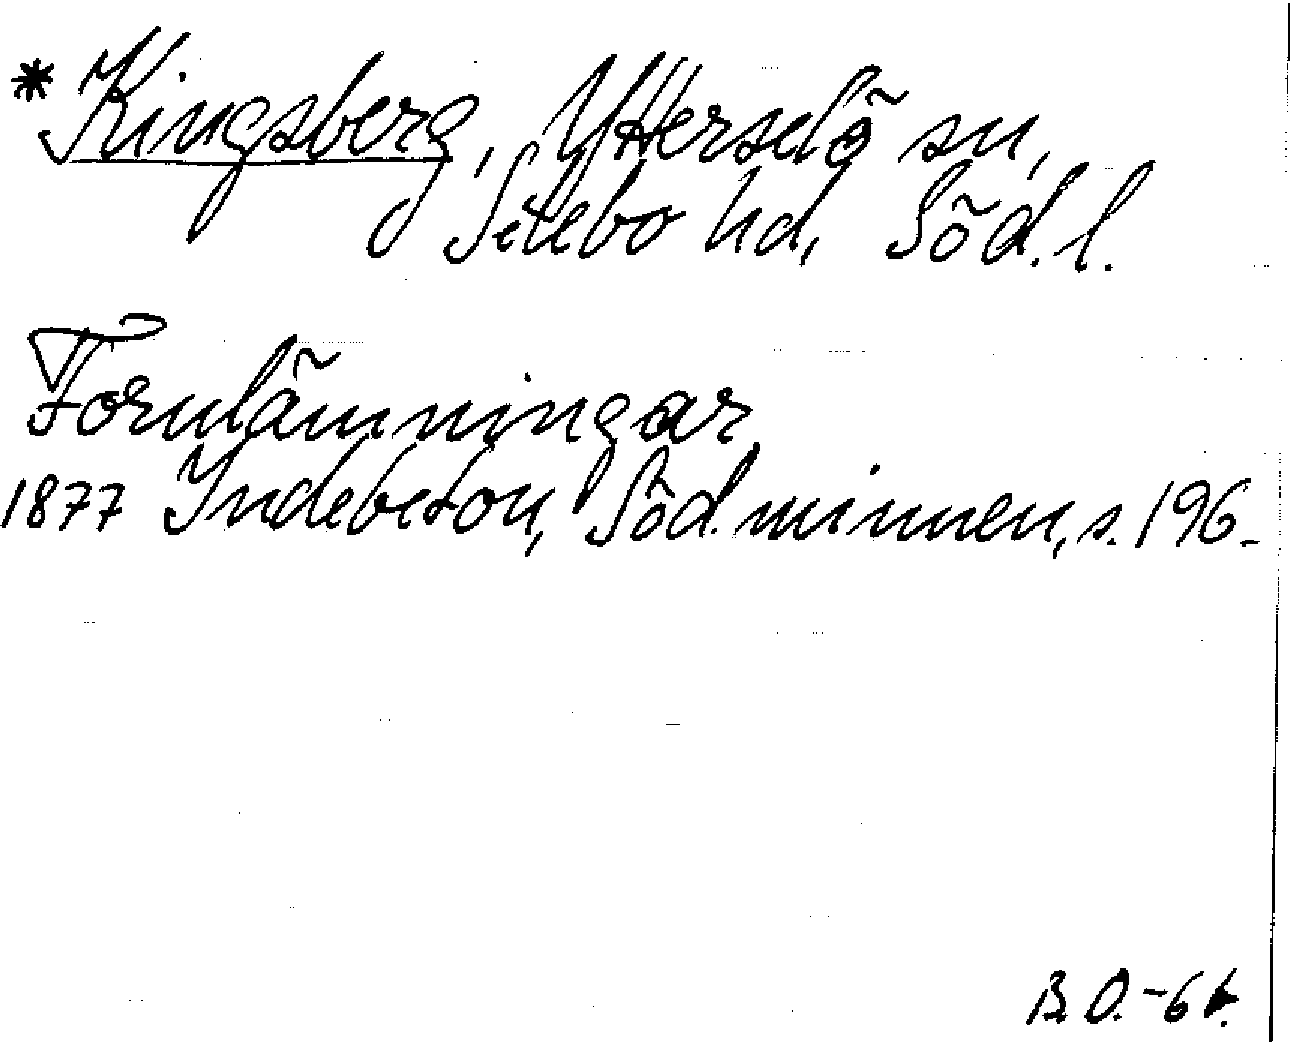 * Kingsberg, Ytterselö sn,
Selebo hd, Söd. l.
Fornlämningar
1877 Indebetou, Söd. minnen, s. 196.
B.O. -61.